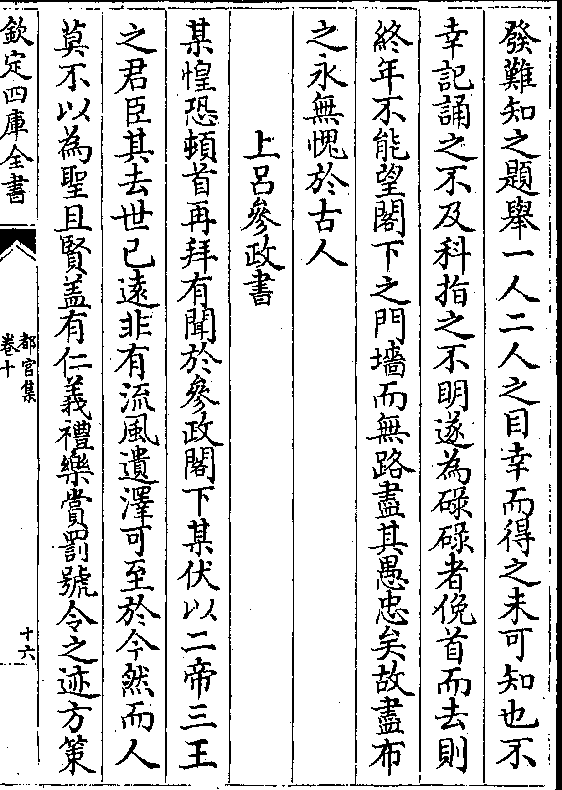 發難知之題舉一人二人之目幸而得之未可知也不
幸記誦之不及科指之不明遂為碌碌者俛首而去則
終年不能望閣下之門墻而無路盡其愚忠矣故盡布
之永無愧於古人
上呂參政書
某惶恐頓首再拜有聞於參政閣下某伏以二帝三王
之君臣其去世已逺非有流風遺澤可至於今然而人
莫不以為聖且賢盖有仁義禮樂賞罰號令之迹方策
欽定四庫全書
都官集
卷十
十六